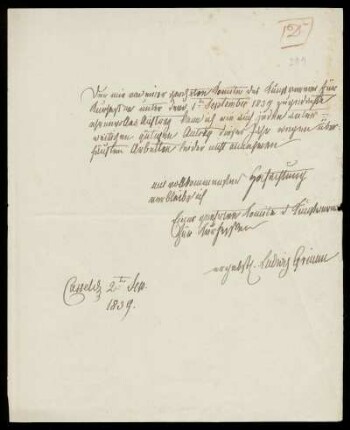 Den mir von einer geehrten Comitee des Kunstvereins für
Kurhessen unter dem 1ten September 1839 zugedachten
ehrenvollen Auftrag kann ich wie auch jeden ander
weitigen gütigen Antrag dieses Jahr wegen über
häufter Arbeiten leider nicht annehmen.
mit vollkommenster Hochachtung
verbleibe ich
Einer geehrten Comitee d. Kunstvereins
für Kurhessen
ergebenst. Ludwig Grimm
Cassel d. 2ten Sep.
1839.